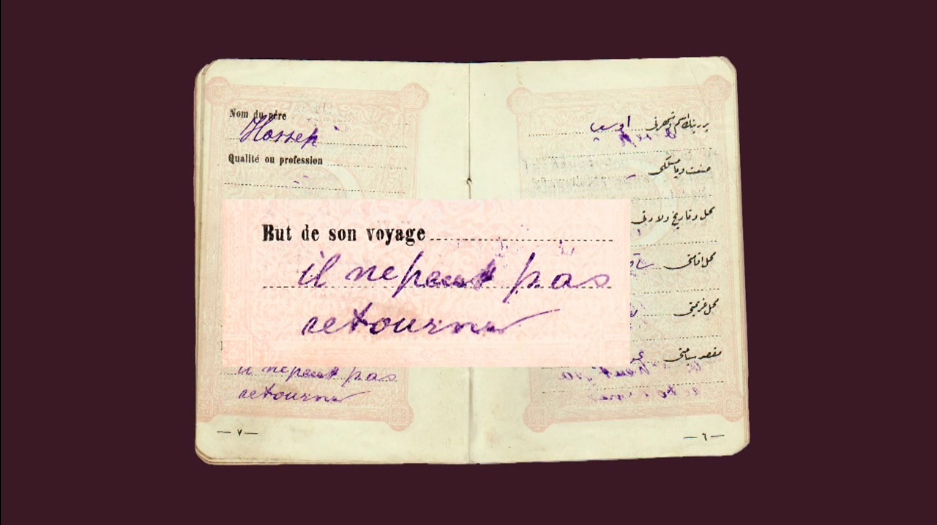 Nom du père
Hossep
Qualité ou profession
But de son voyage
il ne peut pas
retourner
il ne peut pas
retourner
— ٧ —
صنعت ویا مسلكی
محل و تاریخ ولادتی
محل اقامتی
محل عزیمتی
مقصد سیاحتی
— ٦ —